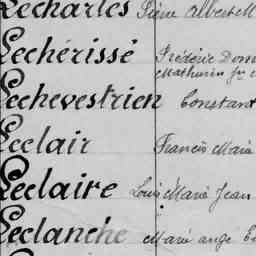 Lecharles Pierre Albert M
Lechérissé Frédéric
Mathurin
Lechevestrien Constant
Leclair Francis Marie
Leclaire Louis Marie Jean
Leclanche Marie ange